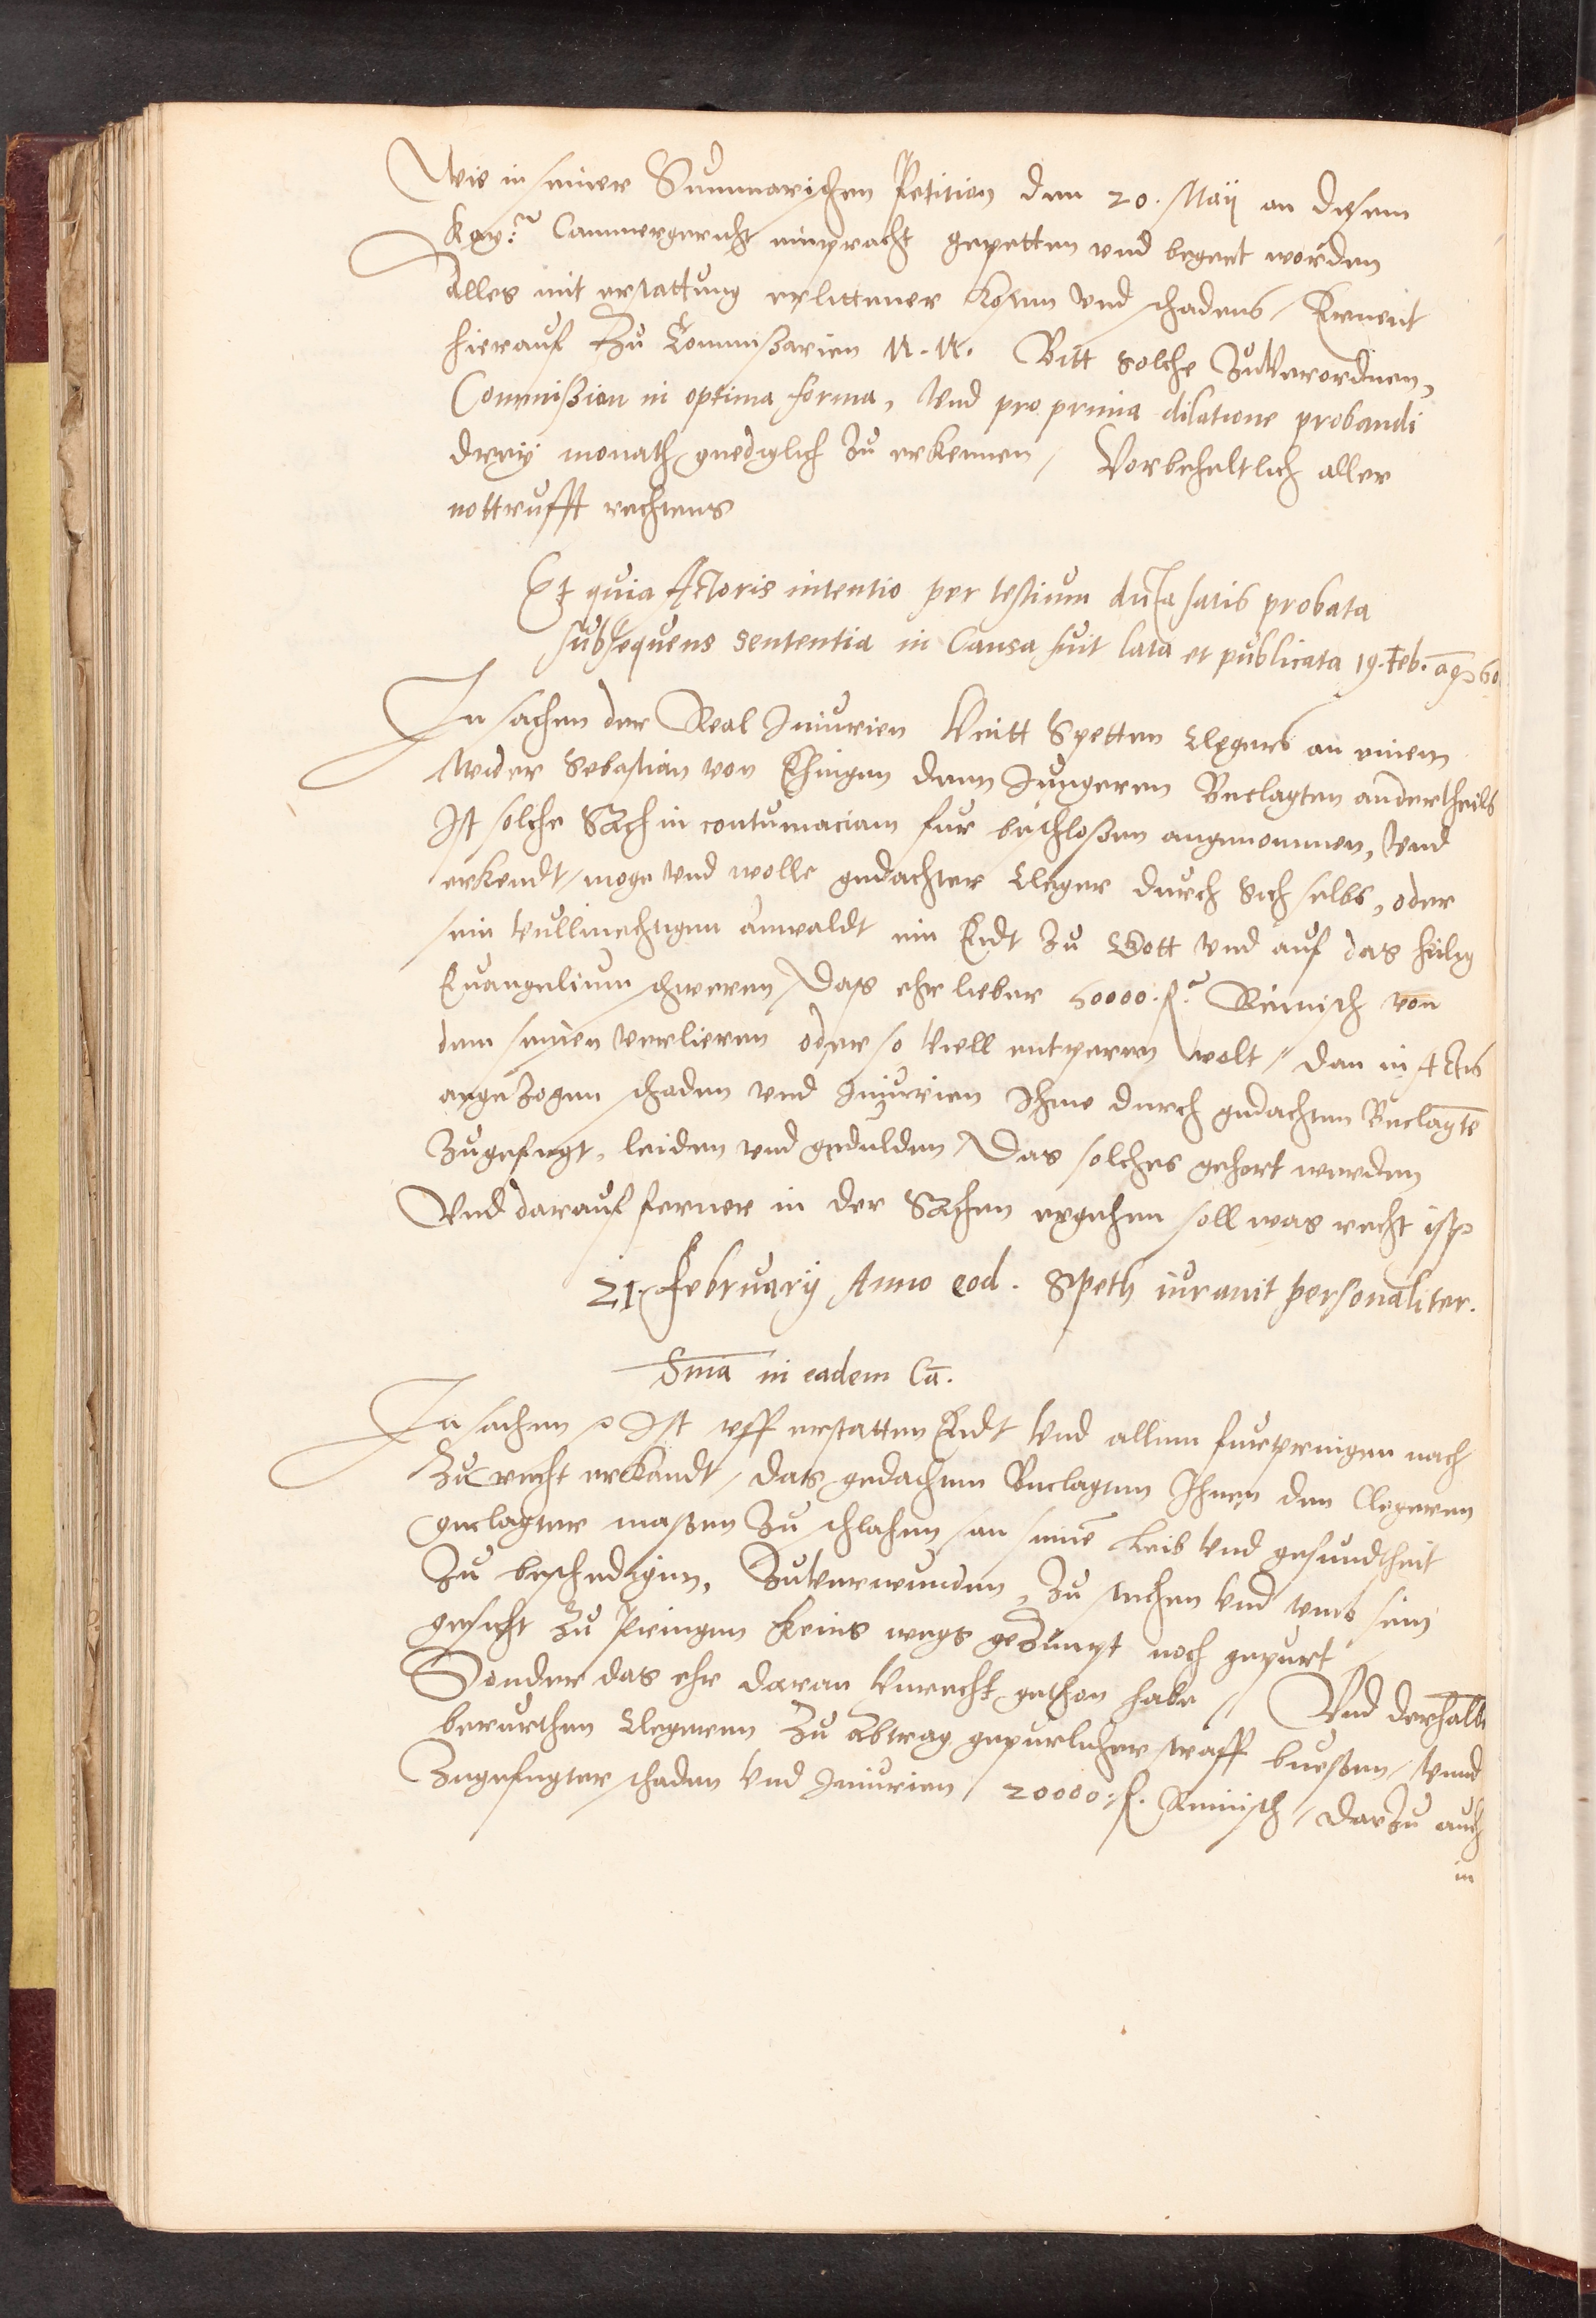 Wie in seiner Summarischen Petition den 20. Maij an disem
Kay: Cammergericht einpracht gepetten vnd begert worden
Alles mit erstattung erlittener Kosten vnd schadens, Ernent
hierauf Zu Commissarien N. N. Bitt solche Zuverordnen,
Commission in optima forma, Vnd pro prima dilatione probandi
dreÿ monath gnediglich zu erkennen, Vorbeheltlich aller
nottrufft rechtens
Et quia Actoris intentio per testium dicta satis probata
subsequens sententia in Causa fuit lata et publicata 19. Feb. 60
In sachen der Real Iniurien Veitt Spetten Clegers an einem
Wider Sebastian von Ehingen dem Jungeren Beclagten andertheils
Ist solche Sach in contumaciam fur beschlossen angenommen, Vnd
erkendt, moge vnd wolle gedachter Cleger durch Sich selbs, oder
sein vullmechtigen anwaldt ein Eidt zu Gott vnd auf das heilig
Euangelium schweren, Das ehr lieber 50000. f. Reinisch von
dem seinen verlieren oder so viell entperen wolt, dan in Actis
angezogen schaden vnd Iniurien Ihme durch gedachten Beclagte
zugefuegt, leiden vnd gedulden, Das solches gehort werden
Vnd darauf ferner in der Sachen ergehen soll was recht ist
21. February Anno eod. Speth iurauit personaliter.
Sma in eadem Ca.
In sachen Ist vff erstatten Eidt Vnd allem furpringen nach
Zu recht erkandt, das gedachten Beclagten Ihnen den Clegeren
geclagter massen zu schlahen, an seine Leib Vnd gesundtheit
Zu beschedigen, Zuverwunden, zu stechen Vnd vmb sein
gesicht zu pringen keins wegs gezimpt noch gepurt
Sonder das ehr daran Vnrecht gethon habe, Vnd derhalb
berurthen Clegeren zu abtrag gepurlicher straff buessen, Vnnd
Zugefuegter schaden Vnd Iniurien, 20000. f. Reinisch, darzu auch
in